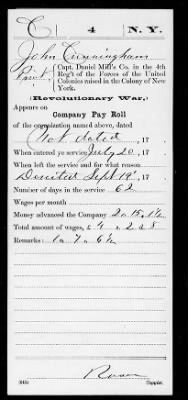 C 4 N.Y.
John Cunningham
Privt, Capt. Daniel Mill's Co. in the 4th
Reg't of the Forces of the United
Colonies raised in the Colony of New
York.
(Revolutionary War.)
Appears on
Company Pay Roll
of the organization named above, dated
Not dated, 17 .
When entered ye service July 20, 17 .
When left the service and for what reason
Deserted Sept 19", 17 .
Number of days in the service 62
Wages per month
Money advanced the Company 2. 15. 1½
Total amount of wages, £ 4. 2. 8
Remarks: 1. 7. 6½
(545)
Copyist.